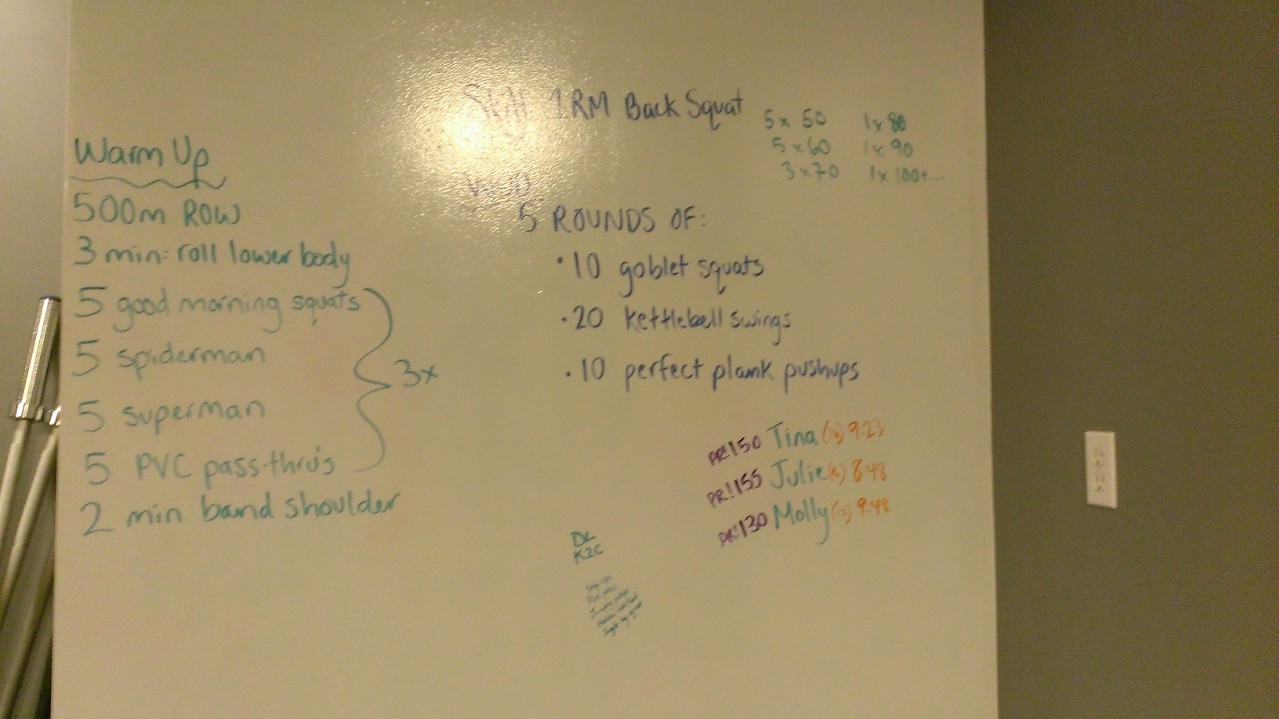 Warm Up
500m ROW
3 min: roll lower body
5 good morning squats
5 spiderman
5 superman
3x
5 PVC pass-thru's
2 min band shoulder
Skill 1RM Back Squat
5 x 50 1 x 80
5 x 60 1 x 90
3 x 70 1 x 100+...
WOD
5 ROUNDS OF:
• 10 goblet squats
• 20 kettlebell swings
• 10 perfect plank pushups
PR! 150 Tina 9:23
PR! 155 Julie 8:48
PR! 130 Molly 9:48
DL
K2C